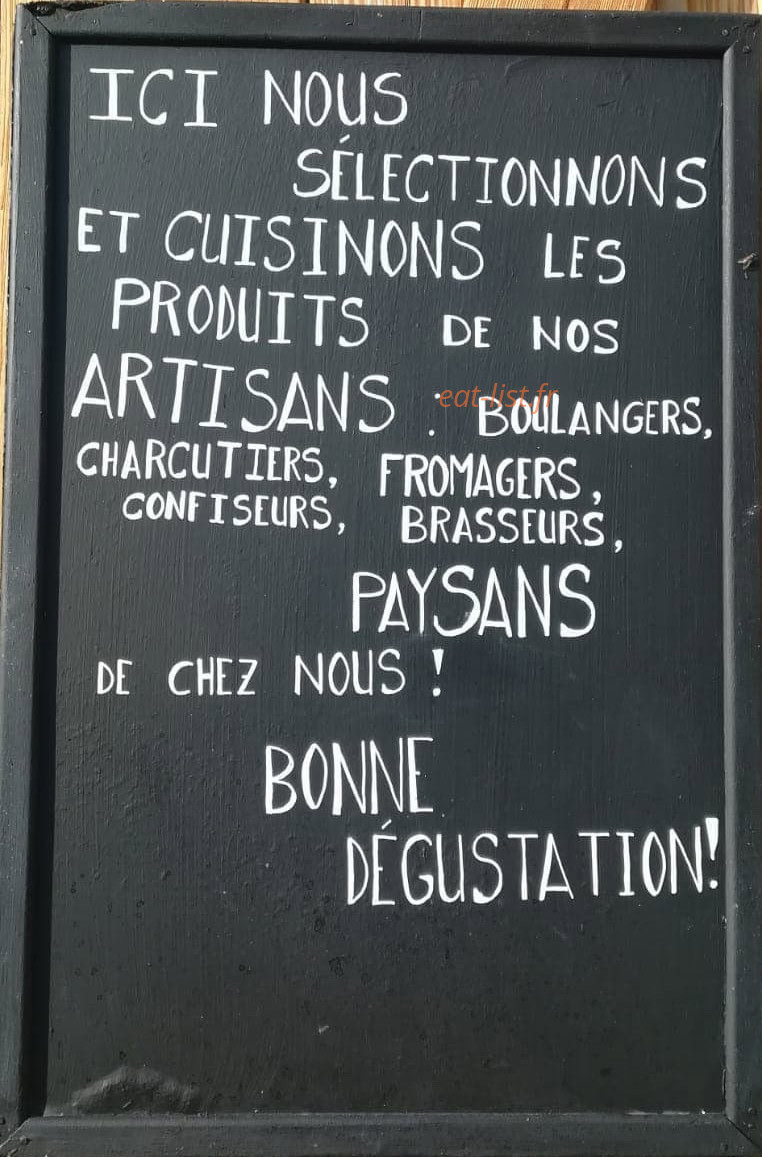 ICI NOUS
SÉLECTIONNONS
ET CUISINONS LES
PRODUITS DE NOS
ARTISANS : BOULANGERS,
eat-list.fr
CHARCUTIERS, FROMAGERS,
CONFISEURS, BRASSEURS,
PAYSANS
DE CHEZ NOUS !
BONNE
DÉGUSTATION!